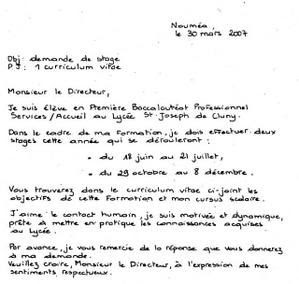 Nouméa,
le 30 mars 2007
Obj: demande de stage
PJ: 1 curriculum vitae
Monsieur le Directeur,
Je suis élève en Première Baccalauréat Professionnel
Services/Accueil au Lycée St Joseph de Cluny.
Dans le cadre de ma Formation, je dois effectuer deux
stages cette année qui se dérouleront :
• du 18 juin au 21 juillet,
• du 29 octobre au 8 décembre.
Vous trouverez dans le curriculum vitae ci-joint les
objectifs de cette Formation et mon cursus scolaire.
J'aime le contact humain, je suis motivée et dynamique,
prête à mettre en pratique les connaissances acquises
au Lycée.
Par avance, je vous remercie de la réponse que vous donnerez
à ma demande.
Veuillez croire, Monsieur le Directeur, à l'expression de mes
sentiments respectueux.